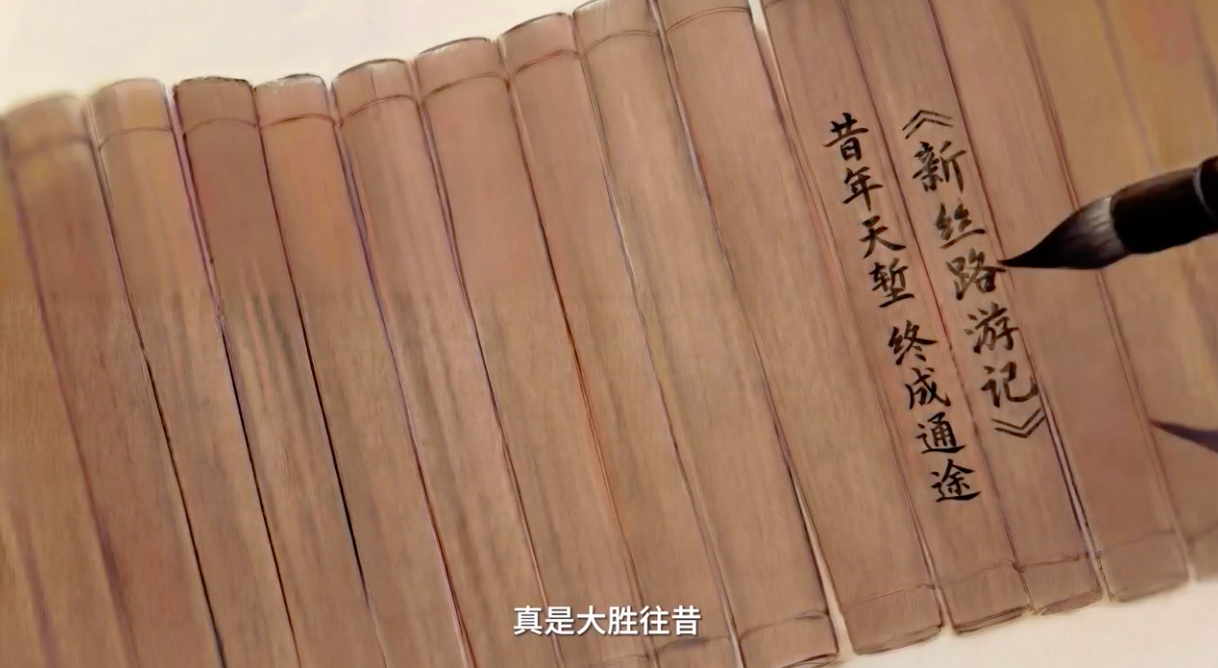 《新丝路游记》
昔年天堑 终成通途
真是大胜往昔